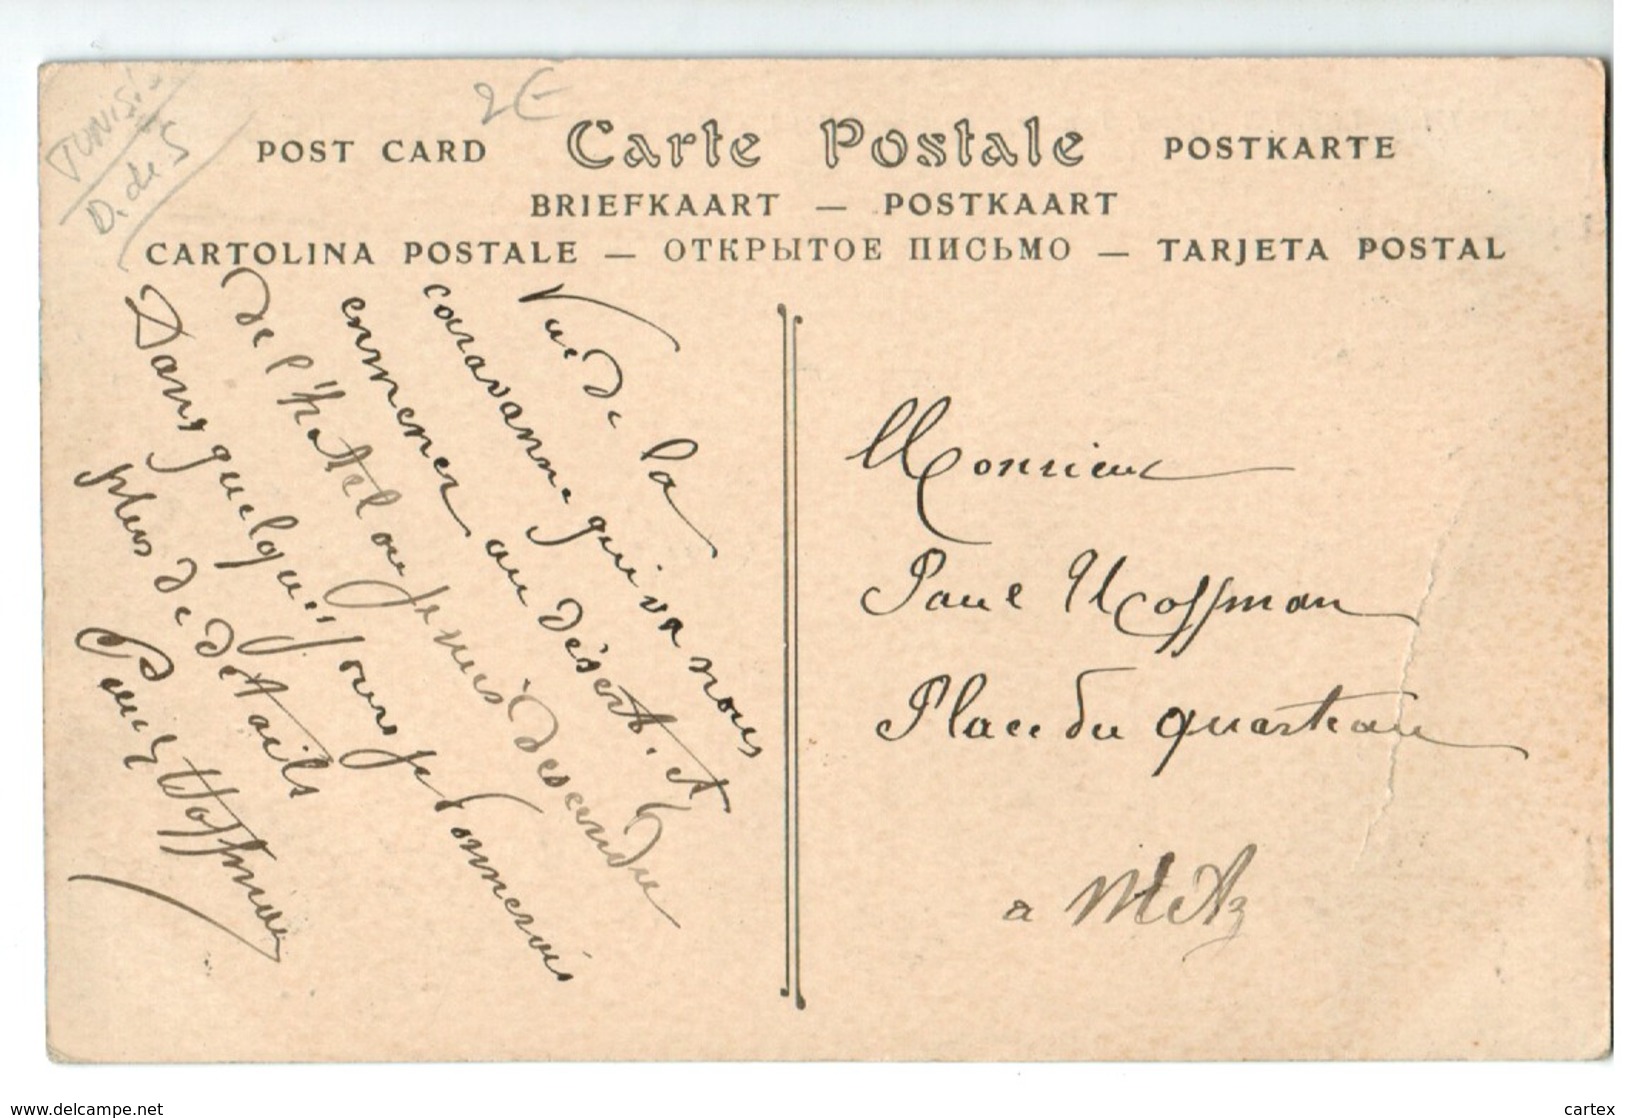 TUNISI-
D. de S
2€
POST CARD Carte Postale POSTKARTE
BRIEFKAART — POSTKAART
CARTOLINA POSTALE — ОТКРЫТОЕ ПИСЬМО — TARJETA POSTAL
Vue de la
caravanne qui va nous
emmener au désert. Et
de l'hotel ou je vais descendre
Dans quelques jours je donnerais
plus de details
Paul Hoffman
Monsieur
Paul Hoffman
Place du quarteau
a Metz
www.delcampe.net
cartex